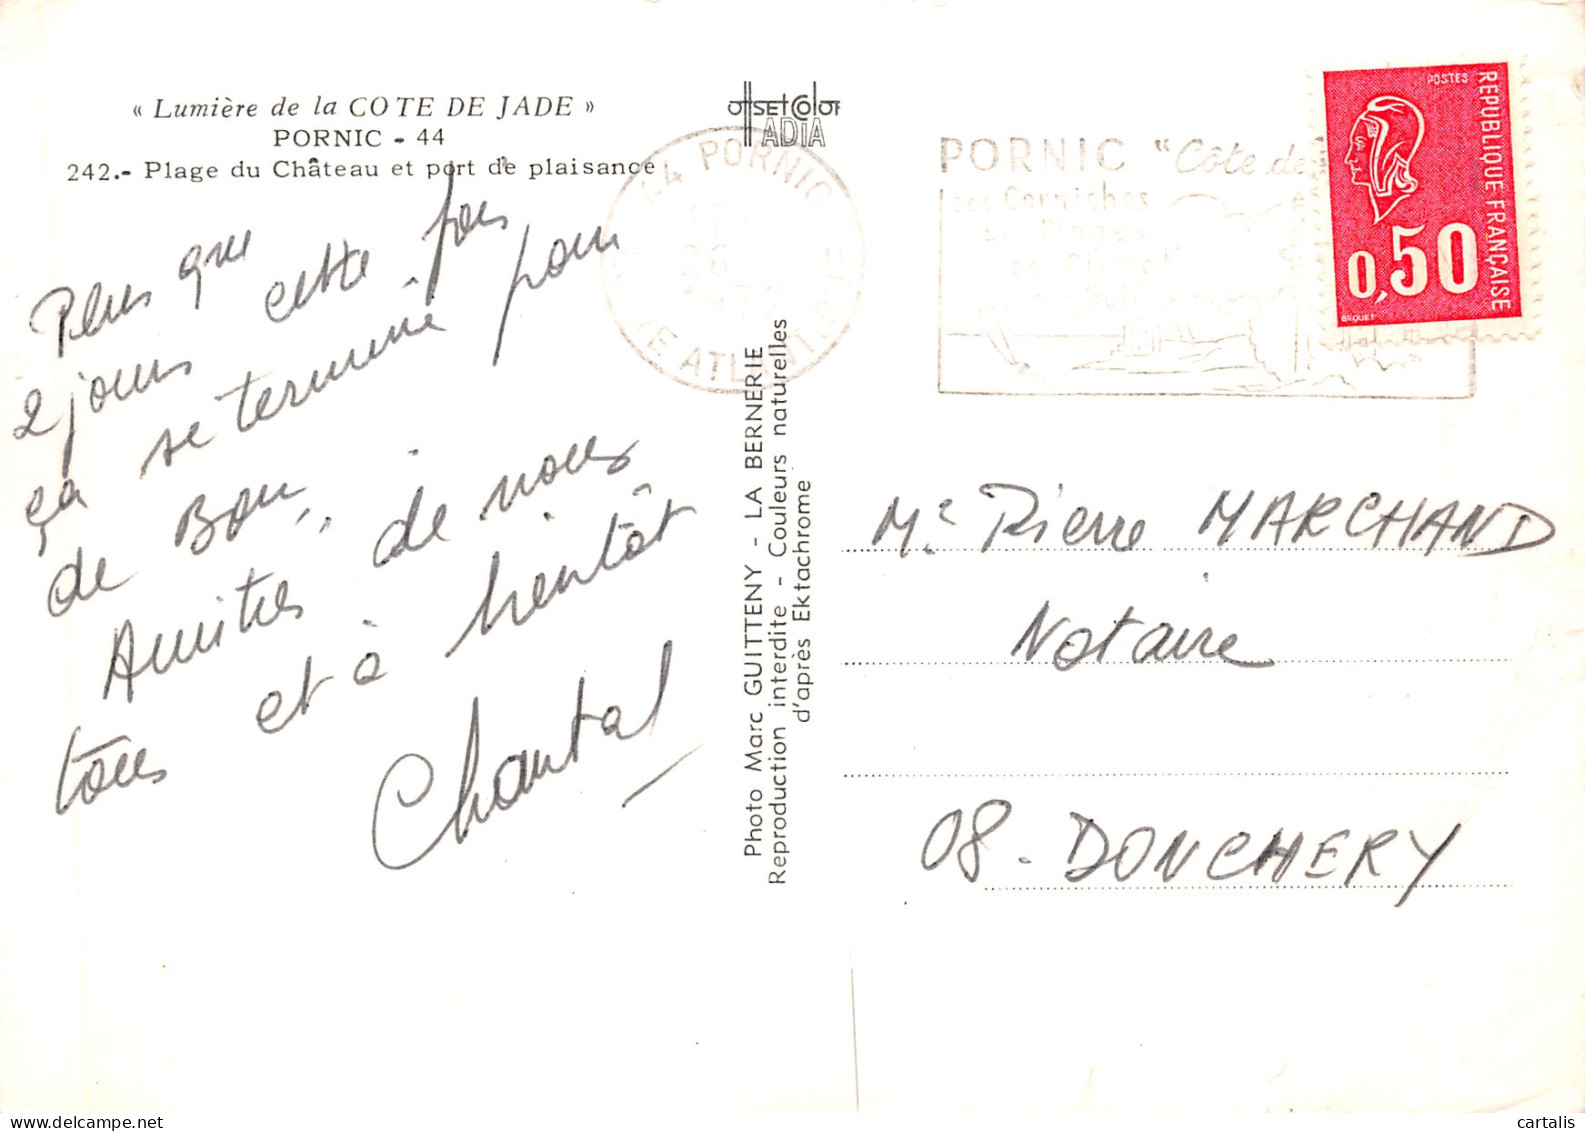 « Lumière de la COTE DE JADE »
PORNIC - 44
242.- Plage du Château et port de plaisance
offsetcolor
ADIA
44 PORNIC
LE ATLANTIQUE
PORNIC "Côte de
ses Corniches
ses Plages
son Climat
POSTES
REPUBLIQUE FRANÇAISE
0,50
BEQUET
Plus que
2 jours cette fois
ça se termine pour
de Bon,,
Amitiés de nous
tous et à bientôt
Chantal
Photo Marc GUITTENY - LA BERNERIE
Reproduction interdite - Couleurs naturelles
d'après Ektachrome
Me Pierre MARCHAND
Notaire
08. DONCHERY
cartalis